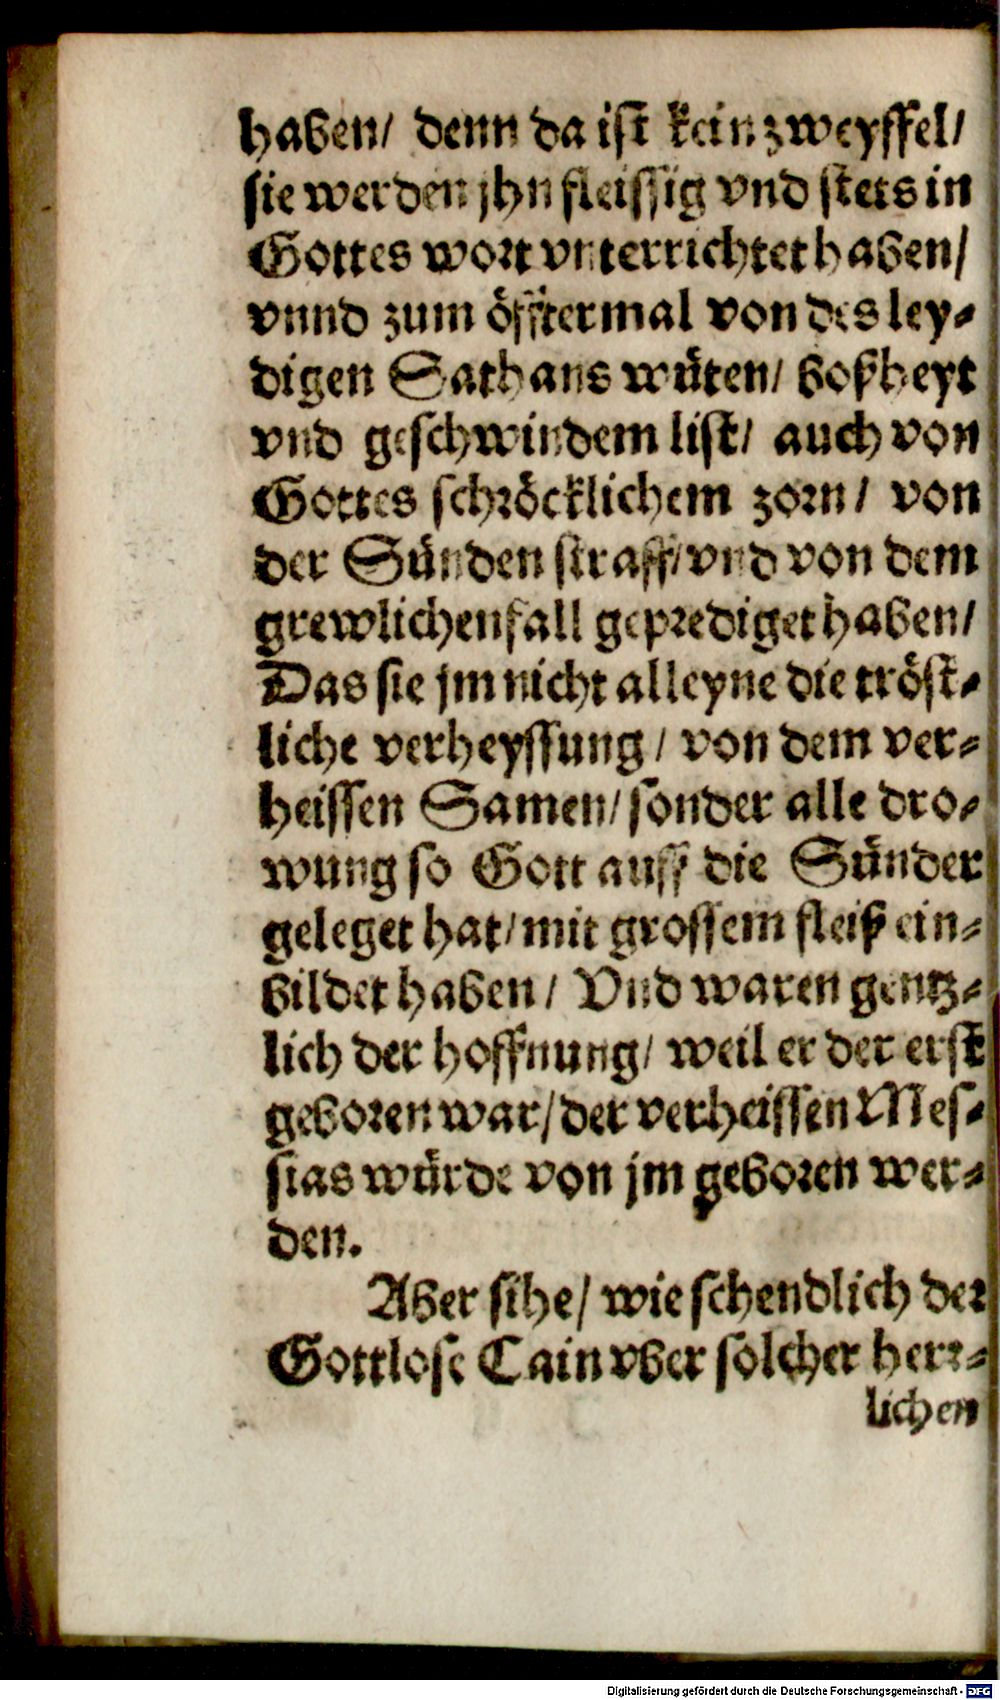 haben/ denn da ist kein zweyffel/
sie werden jhn fleissig vnd stets in
Gottes wort vnterrichtet haben/
vnnd zum öfftermal von des ley-
digen Sathans wüten/ boßheyt
vnd geschwindem list/ auch von
Gottes schröcklichem zorn/ von
der Sünden straff/ vnd von dem
grewlichen fall geprediget haben/
Das sie jm nicht alleyne die tröst-
liche verheyssung/ von dem ver-
heissen Samen/ sonder alle dro-
wung so Gott auff die Sünder
geleget hat/ mit grossem fleiß ein-
bildet haben/ Vnd waren gentz-
lich der hoffnung/ weil er der erst
geboren war/ der verheissen Mes-
sias würde von jm geboren wer-
den.
Aber sihe/ wie schendlich der
Gottlose Cain vber solcher herr-
lichen
Digitalisierung gefördert durch die Deutsche Forschungsgemeinschaft - DFG